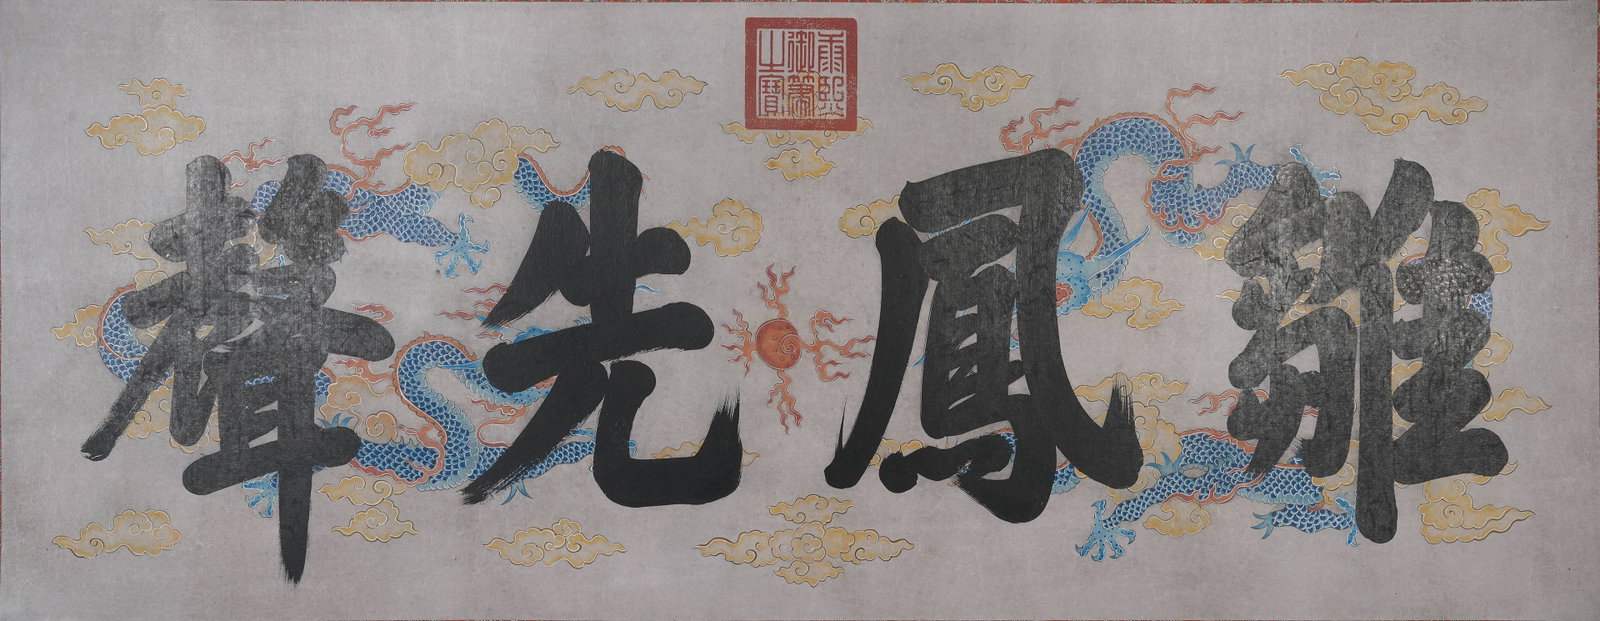 雛鳳先聲
康熙
御筆
之寶